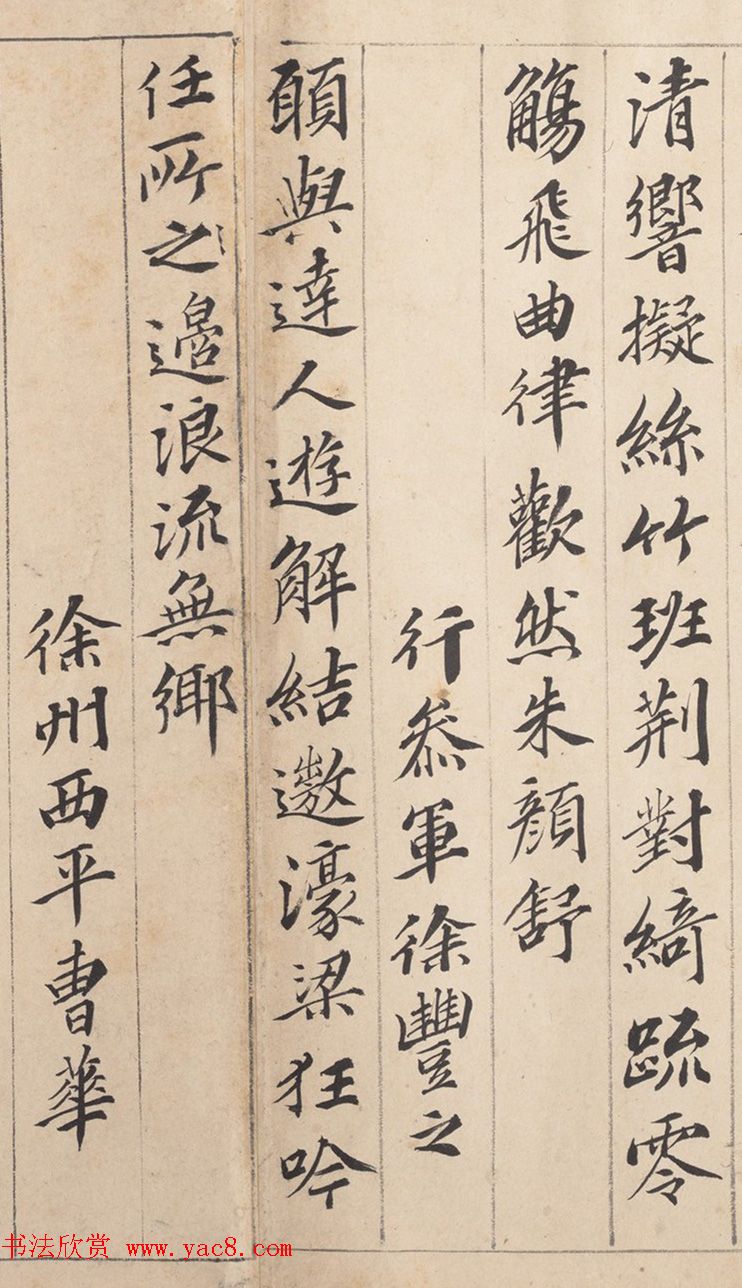 清響擬絲竹班荆對綺䟽零
觴飛曲律歡然朱顔舒
行叅軍徐豐之
願與達人遊解結遨濠梁狂吟
任所之邉浪流無鄉
徐州西平曹華
书法欣赏 www.yac8.com